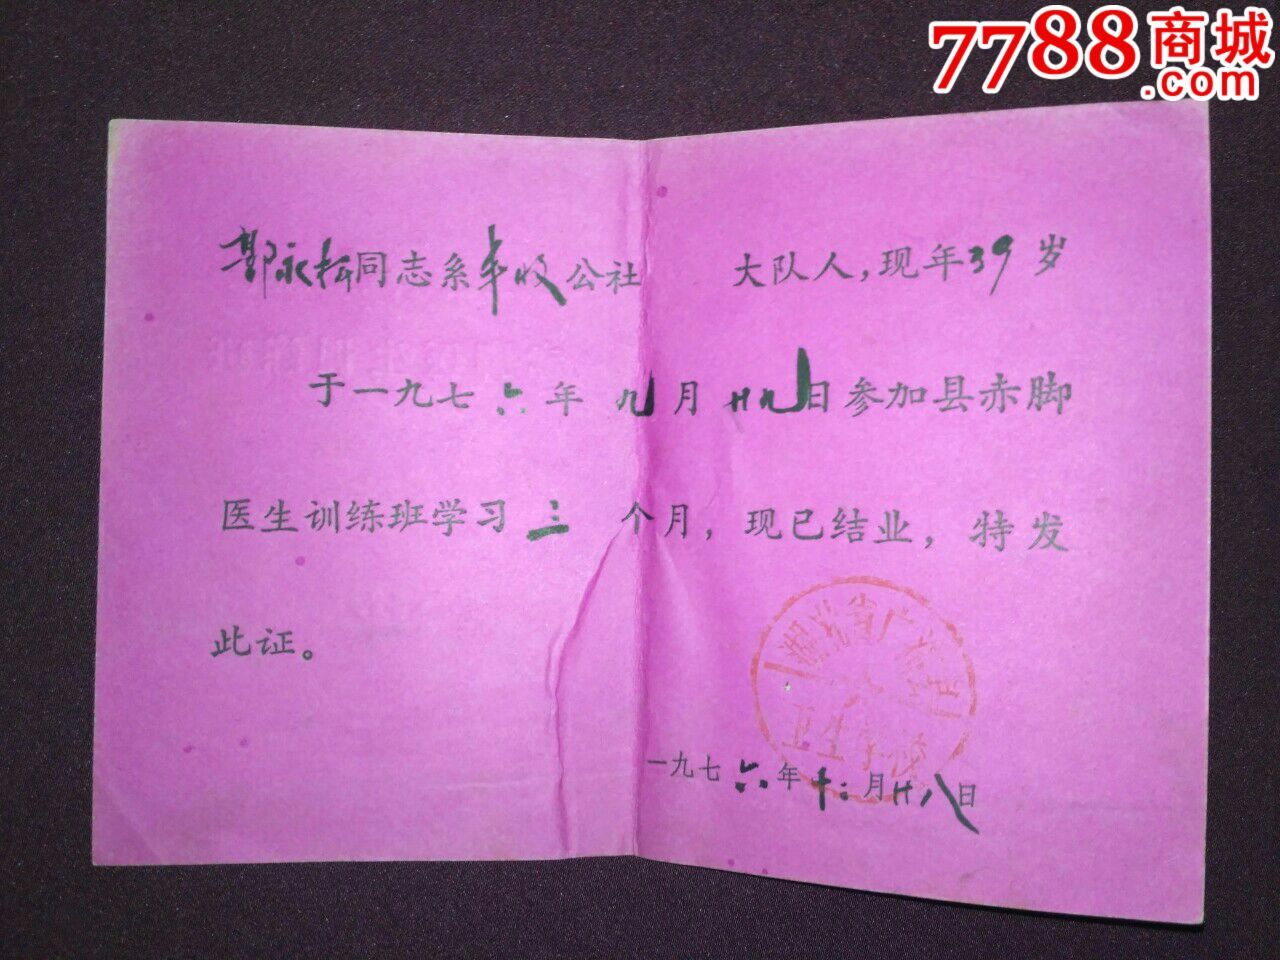 7788商城
.com
郭永松同志系丰收公社 大队人，现年39岁
于一九七六年九月廿九日参加县赤脚
医生训练班学习三个月，现已结业，特发
此证。
湖北省广济县
卫生学校
一九七六年十二月廿八日